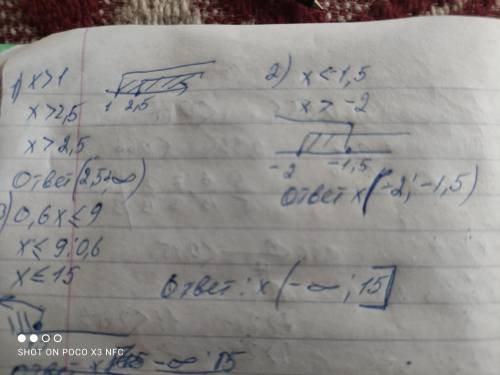 1) x>1
x>2,5
x>2,5
Ответ (2,5;∞)
1 2,5
2) x<-1,5
x>-2
-2 -1,5
Ответ x(-2;-1,5)
3) 0,6x≤9
x≤9:0,6
x≤15
Ответ: x(-∞;15]
-∞ 15
SHOT ON POCO X3 NFC